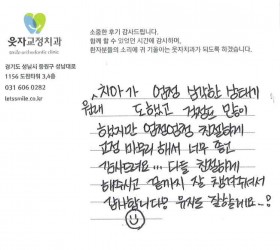 웃자교정치과
smile orthodontic clinic
경기도 성남시 중원구 성남대로
1156 도원타워 3,4층
031 606 0282
letssmile.co.kr
소중한 후기 감사드립니다.
함께 할 수 있었던 시간에 감사하며,
환자분들의 소리에 귀 기울이는 웃자치과가 되도록 하겠습니다.
치아가 엄청 심각한 상태가
도 했었고 걱정도 많이
했지만 엄청엄청 친절하게
교정 마무리 해서 너무 좋고
감사드려요... 다들 친절하게
해주시고 끝까지 잘 챙겨주셔서
감사합니다! 유지는 잘할게요~!